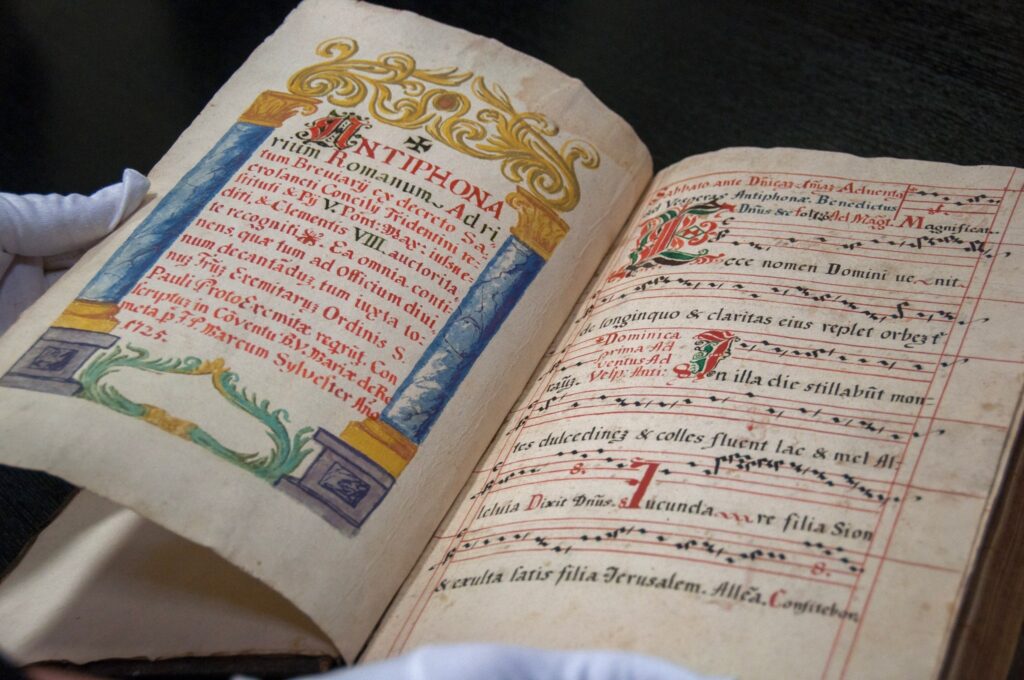 ✠
ANTIPHONA
rium Romanum Ad ri
tum Breviarij ex decreto Sa:
crosancti Concilij Tridentini re:
stituti & Pij V. Font: Max: iussu e:
diti, & Clementis VIII. auctorita,
te recogniti. Ea omnia conti:
nens, quæ tum ad officium diui,
num decantāduȝ, tum iuxta to:
nuȝ Eremitaruȝ Ordinis S.
Pauli Proto Eremitæ reqrūt. Con
scriptus in Cōventu B.V. Mariæ de
p. Fr. Marcum Sylvester Año
1725.
Sabbato ante Adventū
ad Vesperas Antiphonæ Benedictus
Dñus & Ad Magt. Magnificat.
Ecce nomen Domini ve nit
de longinquo & claritas eius replet orbeȝ t
raꝝ. Dominica
prima Ad
ventus Ad
Vesp: Anti: In illa die stillabūt mon-
tes dulcedineȝ & colles fluent lac & mel Al-
leluia Dixit Dñus. 8. Iucunda re filia Sion
& exulta satis filia Jerusalem. Allēa. Confitebor
8.